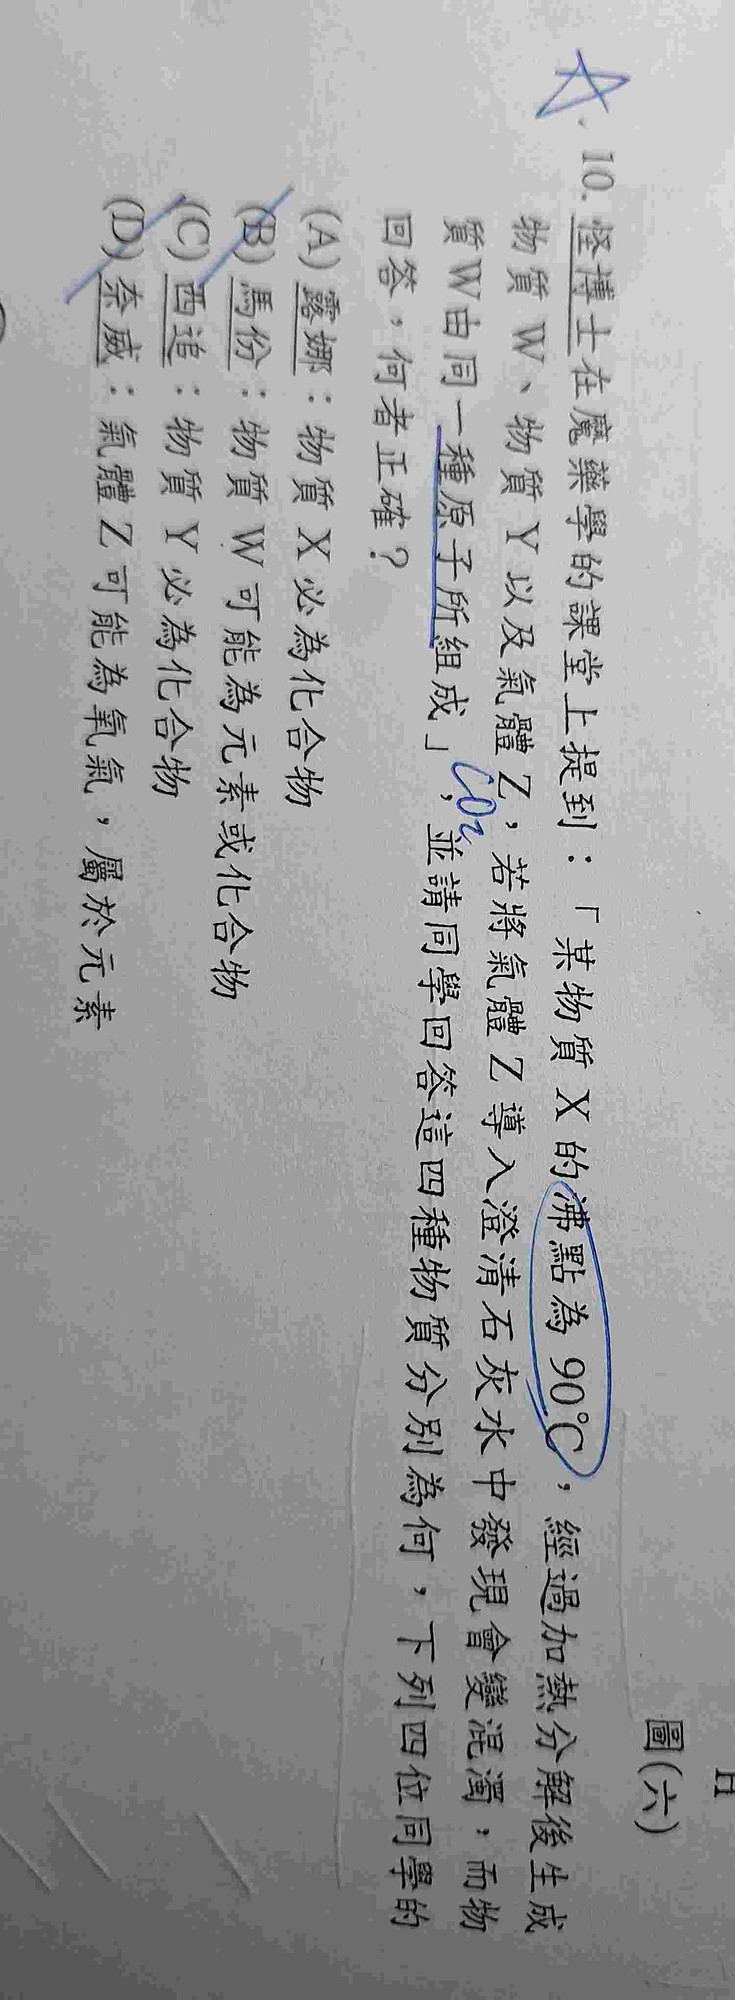 圖(六)
10. 怪博士在魔藥學的課堂上提到：「某物質 X 的沸點為 90℃，經過加熱分解後生成
物質 W、物質 Y 以及氣體 Z，若將氣體 Z 導入澄清石灰水中發現會變混濁，而物
CO2
質W由同一種原子所組成」，並請同學回答這四種物質分別為何，下列四位同學的
回答，何者正確？
(A) 露娜：物質 X 必為化合物
(B) 馬份：物質 W 可能為元素或化合物
(C) 西追：物質 Y 必為化合物
(D) 奈威：氣體 Z 可能為氧氣，屬於元素